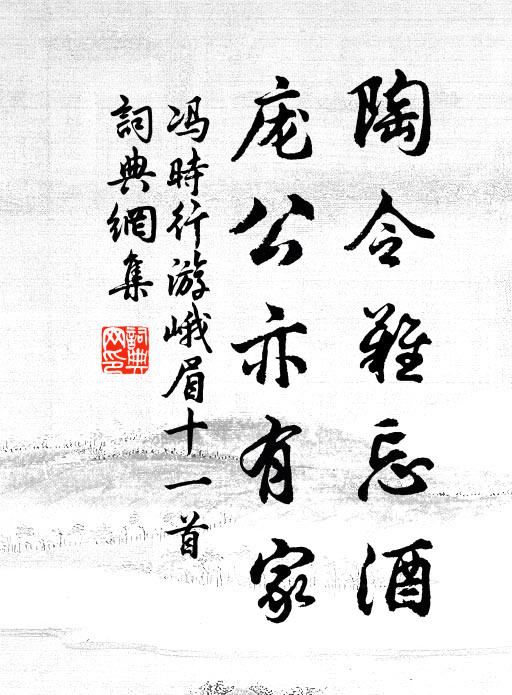 陶令難忘酒
庞公亦有家
冯時行游峨眉十一首
詞典網集
詞典網印